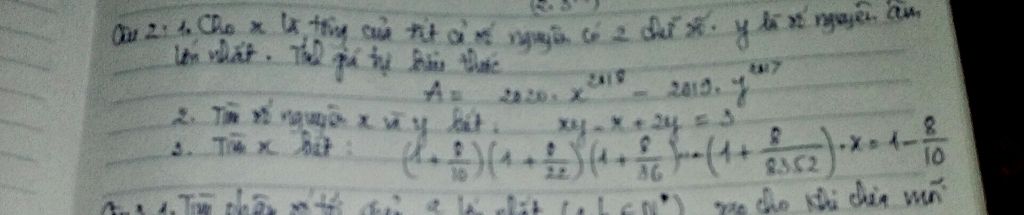 Câu 2: 1. Cho x là tổng của tất cả số nguyên có 2 chữ số. y là số nguyên âm
lớn nhất. Tính giá trị biểu thức
A = 2020. x^2018 - 2019. y^2017
2. Tìm số nguyên x và y biết: xy - x + 2y = 3
3. Tìm x biết: (1 + 8/10)(1 + 8/22)(1 + 8/36)...(1 + 8/8352).x = 1 - 8/10
1. Tìm phân số tối giản nhất sao cho khi chia mỗi